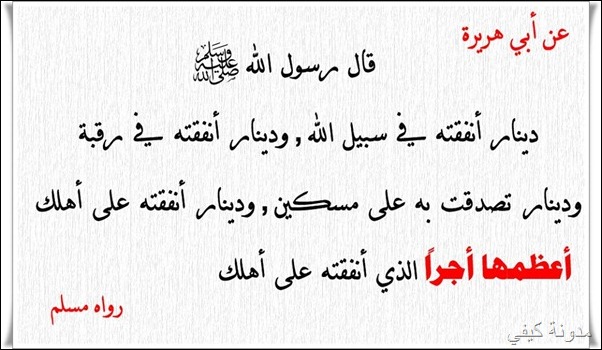 عن أبي هريرة
قال رسول الله ﷺ
دينار أنفقته في سبيل الله , ودينار أنفقته في رقبة
ودينار تصدقت به على مسكين , ودينار أنفقته على أهلك
أعظمها أجراً الذي أنفقته على أهلك
رواه مسلم
مدونة كيفي